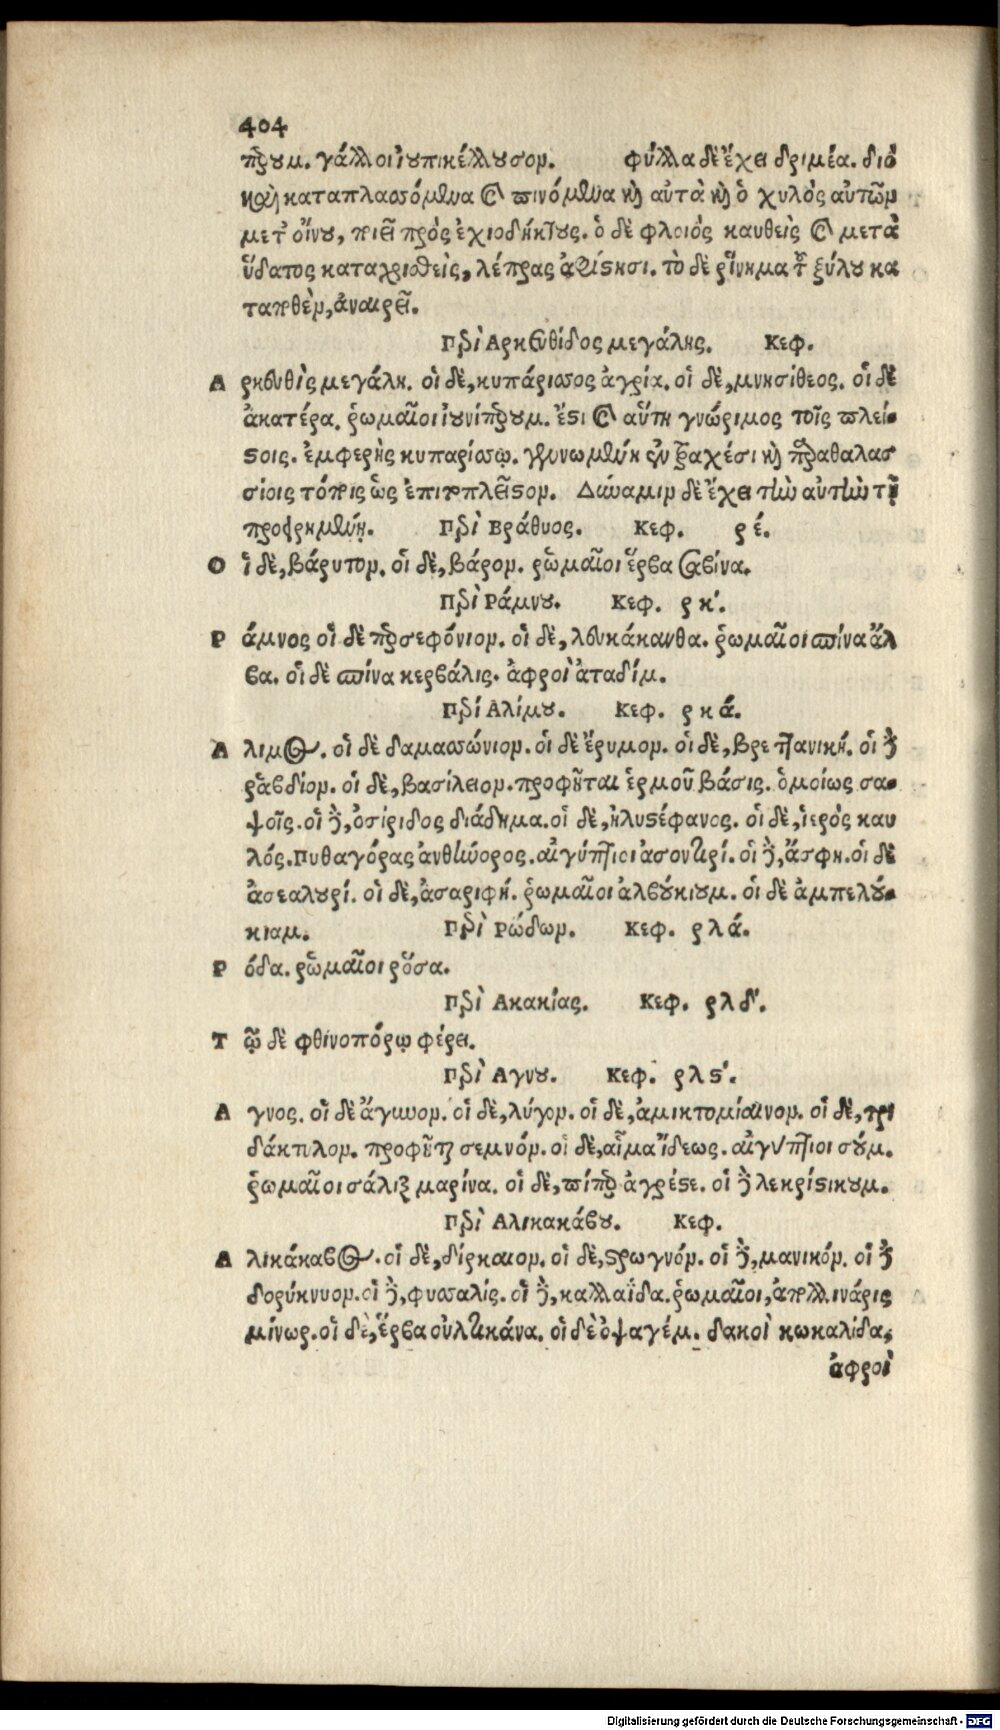 404
περουμ. γάλλοι ἰουπικέλλουσομ. φύλλα δὲ ἔχει δριμέα. διὸ
καὶ καταπλασσόμενα καὶ πινόμενα καὶ αὐτὰ καὶ ὁ χυλὸς αὐτῶν
μετ' οἴνου, ποιεῖ πρὸς ἐχιοδήκτους. ὁ δὲ φλοιὸς καυθεὶς καὶ μετὰ
ὕδατος καταχρισθεὶς, λέπρας ἀφίστησι. τὸ δὲ ῥίνημα τοῦ ξύλου κα
ταποθὲν, ἀναιρεῖ.
Περὶ Αρκευθίδος μεγάλης. Κεφ.
Α ρκευθὶς μεγάλη. οἱ δὲ, κυπάρισσος ἀγρία. οἱ δὲ, μνησίθεος. οἱ δὲ
ἀκατέρα. ῥωμαῖοι ἰουνίπερουμ. ἔστι καὶ αὕτη γνώριμος τοῖς πλεί-
στοις. ἐμφερὴς κυπαρίσσῳ. γεννωμένη ἐν τραχέσι καὶ παραθαλασ
σίοις τόποις ὡς ἐπιτοπλεῖστον. Δύναμιν δὲ ἔχει τὴν αὐτὴν τῇ
προειρημένῃ. Περὶ Βράθυος. Κεφ. ρέ.
Ο ἱ δὲ, βάρυτον. οἱ δὲ, βάρον. ῥωμαῖοι ἕρβα σαβίνα.
Περὶ Ράμνου. Κεφ. ρκ'.
Ρ άμνος οἱ δὲ περσεφόνιον. οἱ δὲ, λευκάκανθα. ῥωμαῖοι σπίνα ἄλ
βα. οἱ δὲ σπίνα κερβάλις. ἀφροὶ ἀταδίμ.
Περὶ Αλίμου. Κεφ. ρκά.
Α λιμος. οἱ δὲ δαμασσώνιον. οἱ δὲ ἔρυμον. οἱ δὲ, βρεττανική. οἱ δὲ
ῥάβδιον. οἱ δὲ, βασίλειον. προφῆται ἑρμοῦ βάσις. ὁμοίως σα-
ψοῖς. οἱ δὲ, ὀσίριδος διάδημα. οἱ δὲ, ἡλυστέφανος. οἱ δὲ, ἱερὸς καυ
λός. Πυθαγόρας ἀνθήνορος. αἰγύπτιοι ἀσοντιρί. οἱ δὲ, ἄσφη. οἱ δὲ
ἀσεαλουρί. οἱ δὲ, ἀσαριφή. ῥωμαῖοι ἀλβούκιουμ. οἱ δὲ ἀμπελύ-
κιαμ. Περὶ Ρόδων. Κεφ. ρλά.
Ρ όδα. ῥωμαῖοι ῥόσα.
Περὶ Ακακίας. Κεφ. ρλδ'.
Τ ῷ δὲ φθινοπόρῳ φέρει.
Περὶ Αγνου. Κεφ. ρλϛ'.
Α γνος. οἱ δὲ ἄγωνον. οἱ δὲ, λύγον. οἱ δὲ, ἀμικτομίαινον. οἱ δὲ, τρι
δάκτυλον. προφῆται σεμνόν. οἱ δὲ, αἷμα ἴδεως. αἰγύπτιοι σούμ.
ῥωμαῖοι σάλιξ μαρίνα. οἱ δὲ, πίπερ ἀγρέστε. οἱ δὲ λεκρίστικουμ.
Περὶ Αλικακάβου. Κεφ.
Α λικάκαβος. οἱ δὲ, δίρκαιον. οἱ δὲ, στρωγνόν. οἱ δὲ, μανικόν. οἱ δὲ
δορύκνυον. οἱ δὲ, φυσσαλίς. οἱ δὲ, καλλαΐδα. ῥωμαῖοι, ἀπολλινάρις
μίνωρ. οἱ δὲ, ἕρβα οὐλτικάνα. οἱ δὲ ὀψαγέμ. δακοὶ κωκαλίδα,
ἀφροὶ
Digitalisierung gefördert durch die Deutsche Forschungsgemeinschaft - DFG